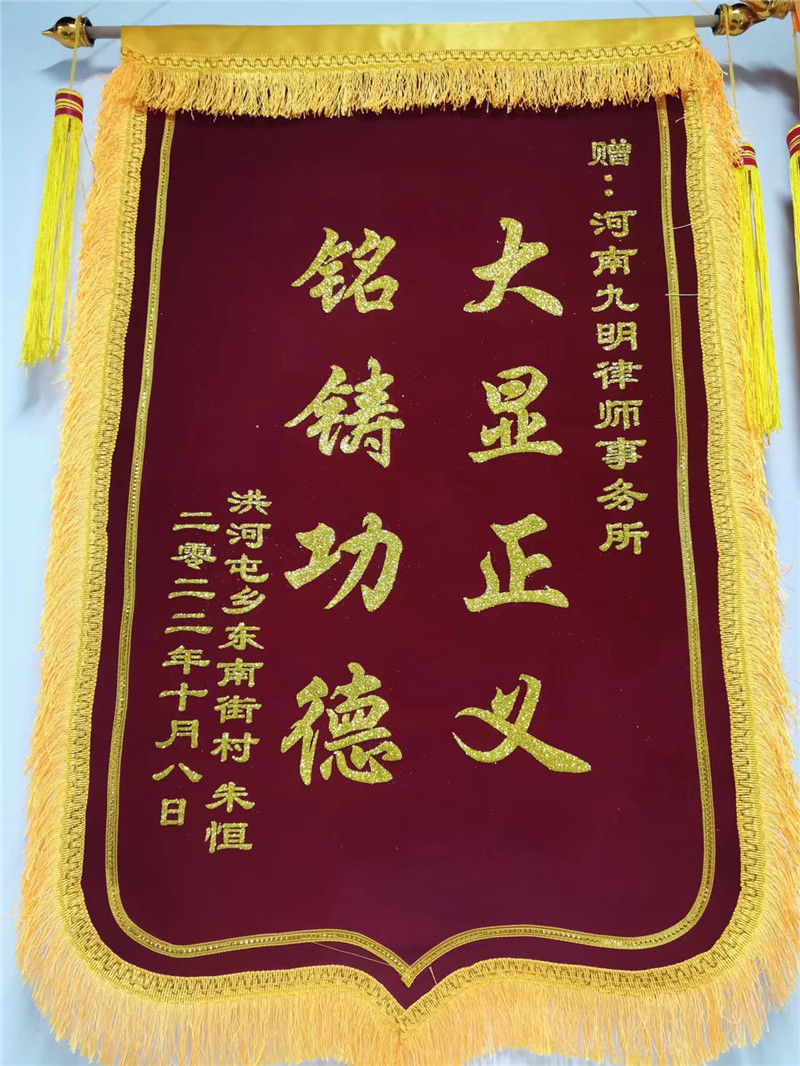 赠：河南九明律师事务所
大显正义
铭铸功德
洪河屯乡东南街村 朱恒
二零二二年十月八日